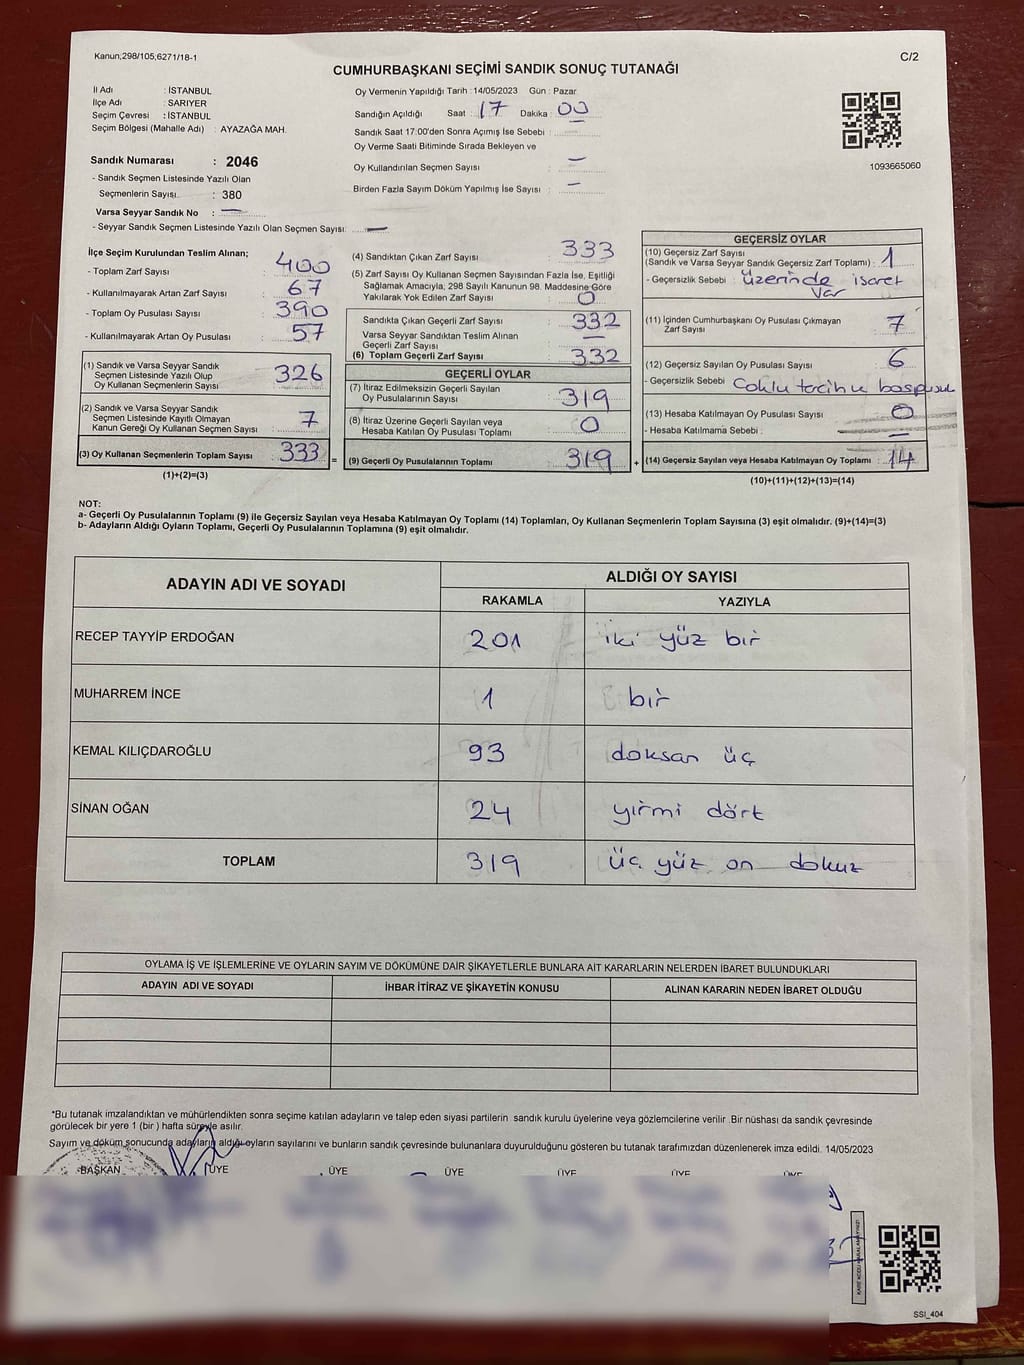 Kanun;298/105;6271/18-1
C/2
CUMHURBAŞKANI SEÇİMİ SANDIK SONUÇ TUTANAĞI
İl Adı : İSTANBUL
İlçe Adı : SARIYER
Seçim Çevresi : İSTANBUL
Seçim Bölgesi (Mahalle Adı) : AYAZAĞA MAH.
Sandık Numarası : 2046
- Sandık Seçmen Listesinde Yazılı Olan
Seçmenlerin Sayısı : 380
Varsa Seyyar Sandık No : —
- Seyyar Sandık Seçmen Listesinde Yazılı Olan Seçmen Sayısı: —
Oy Vermenin Yapıldığı Tarih : 14/05/2023 Gün : Pazar
Sandığın Açıldığı Saat : 17 Dakika : 00
Sandık Saat 17:00'den Sonra Açımış İse Sebebi : —
Oy Verme Saati Bitiminde Sırada Bekleyen ve
Oy Kullandırılan Seçmen Sayısı : —
Birden Fazla Sayım Döküm Yapılmış İse Sayısı : —
1093665060
İlçe Seçim Kurulundan Teslim Alınan;
- Toplam Zarf Sayısı : 400
- Kullanılmayarak Artan Zarf Sayısı : 67
- Toplam Oy Pusulası Sayısı : 390
- Kullanılmayarak Artan Oy Pusulası : 57
(1) Sandık ve Varsa Seyyar Sandık
Seçmen Listesinde Yazılı Olup
Oy Kullanan Seçmenlerin Sayısı : 326
(2) Sandık ve Varsa Seyyar Sandık
Seçmen Listesinde Kayıtlı Olmayan
Kanun Gereği Oy Kullanan Seçmen Sayısı : 7
(3) Oy Kullanan Seçmenlerin Toplam Sayısı : 333
(1)+(2)=(3)
(4) Sandıktan Çıkan Zarf Sayısı : 333
(5) Zarf Sayısı Oy Kullanan Seçmen Sayısından Fazla İse, Eşitliği
Sağlamak Amacıyla; 298 Sayılı Kanunun 98. Maddesine Göre
Yakılarak Yok Edilen Zarf Sayısı : 0
Sandıkta Çıkan Geçerli Zarf Sayısı : 332
Varsa Seyyar Sandıktan Teslim Alınan
Geçerli Zarf Sayısı : —
(6) Toplam Geçerli Zarf Sayısı : 332
GEÇERLİ OYLAR
(7) İtiraz Edilmeksizin Geçerli Sayılan
Oy Pusulalarının Sayısı : 319
(8) İtiraz Üzerine Geçerli Sayılan veya
Hesaba Katılan Oy Pusulası Toplamı : 0
= (9) Geçerli Oy Pusulalarının Toplamı : 319
GEÇERSİZ OYLAR
(10) Geçersiz Zarf Sayısı
(Sandık ve Varsa Seyyar Sandık Geçersiz Zarf Toplamı) : 1
- Geçersizlik Sebebi : üzerinde isaret
var
(11) İçinden Cumhurbaşkanı Oy Pusulası Çıkmayan
Zarf Sayısı : 7
(12) Geçersiz Sayılan Oy Pusulası Sayısı : 6
- Geçersizlik Sebebi : Coklu tercih
(13) Hesaba Katılmayan Oy Pusulası Sayısı : 0
- Hesaba Katılmama Sebebi : —
+ (14) Geçersiz Sayılan veya Hesaba Katılmayan Oy Toplamı : 14
(10)+(11)+(12)+(13)=(14)
NOT:
a- Geçerli Oy Pusulalarının Toplamı (9) ile Geçersiz Sayılan veya Hesaba Katılmayan Oy Toplamı (14) Toplamları, Oy Kullanan Seçmenlerin Toplam Sayısına (3) eşit olmalıdır. (9)+(14)=(3)
b- Adayların Aldığı Oyların Toplamı, Geçerli Oy Pusulalarının Toplamına (9) eşit olmalıdır.
ADAYIN ADI VE SOYADI
ALDIĞI OY SAYISI
RAKAMLA YAZIYLA
RECEP TAYYİP ERDOĞAN 201 iki yüz bir
MUHARREM İNCE 1 bir
KEMAL KILIÇDAROĞLU 93 doksan üç
SİNAN OĞAN 24 yirmi dört
TOPLAM 319 üç yüz on dokuz
OYLAMA İŞ VE İŞLEMLERİNE VE OYLARIN SAYIM VE DÖKÜMÜNE DAİR ŞİKAYETLERLE BUNLARA AİT KARARLARIN NELERDEN İBARET BULUNDUKLARI
ADAYIN ADI VE SOYADI İHBAR İTİRAZ VE ŞİKAYETİN KONUSU ALINAN KARARIN NEDEN İBARET OLDUĞU
*Bu tutanak imzalandıktan ve mühürlendikten sonra seçime katılan adayların ve talep eden siyasi partilerin sandık kurulu üyelerine veya gözlemcilerine verilir. Bir nüshası da sandık çevresinde
görülecek bir yere 1 (bir) hafta süreyle asılır.
Sayım ve döküm sonucunda adayların aldığı oyların sayılarını ve bunların sandık çevresinde bulunanlara duyurulduğunu gösteren bu tutanak tarafımızdan düzenlenerek imza edildi. 14/05/2023
BAŞKAN ÜYE ÜYE ÜYE ÜYE ÜYE ÜYE
SSI_404